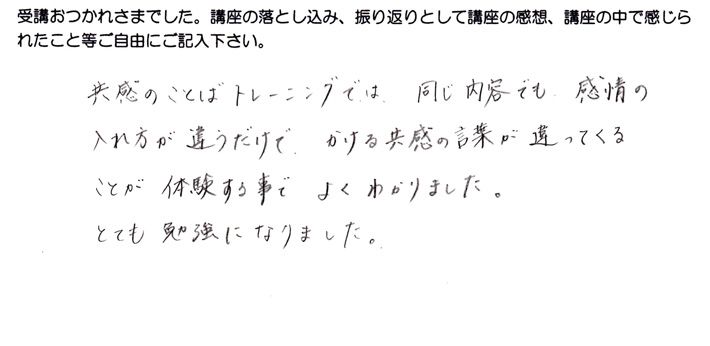 受講おつかれさまでした。講座の落とし込み、振り返りとして講座の感想、講座の中で感じら
れたこと等ご自由にご記入下さい。
共感のことばトレーニングでは、同じ内容でも、感情の
入れ方が違うだけで、かける共感の言葉が違ってくる
ことが体験する事でよくわかりました。
とても勉強になりました。